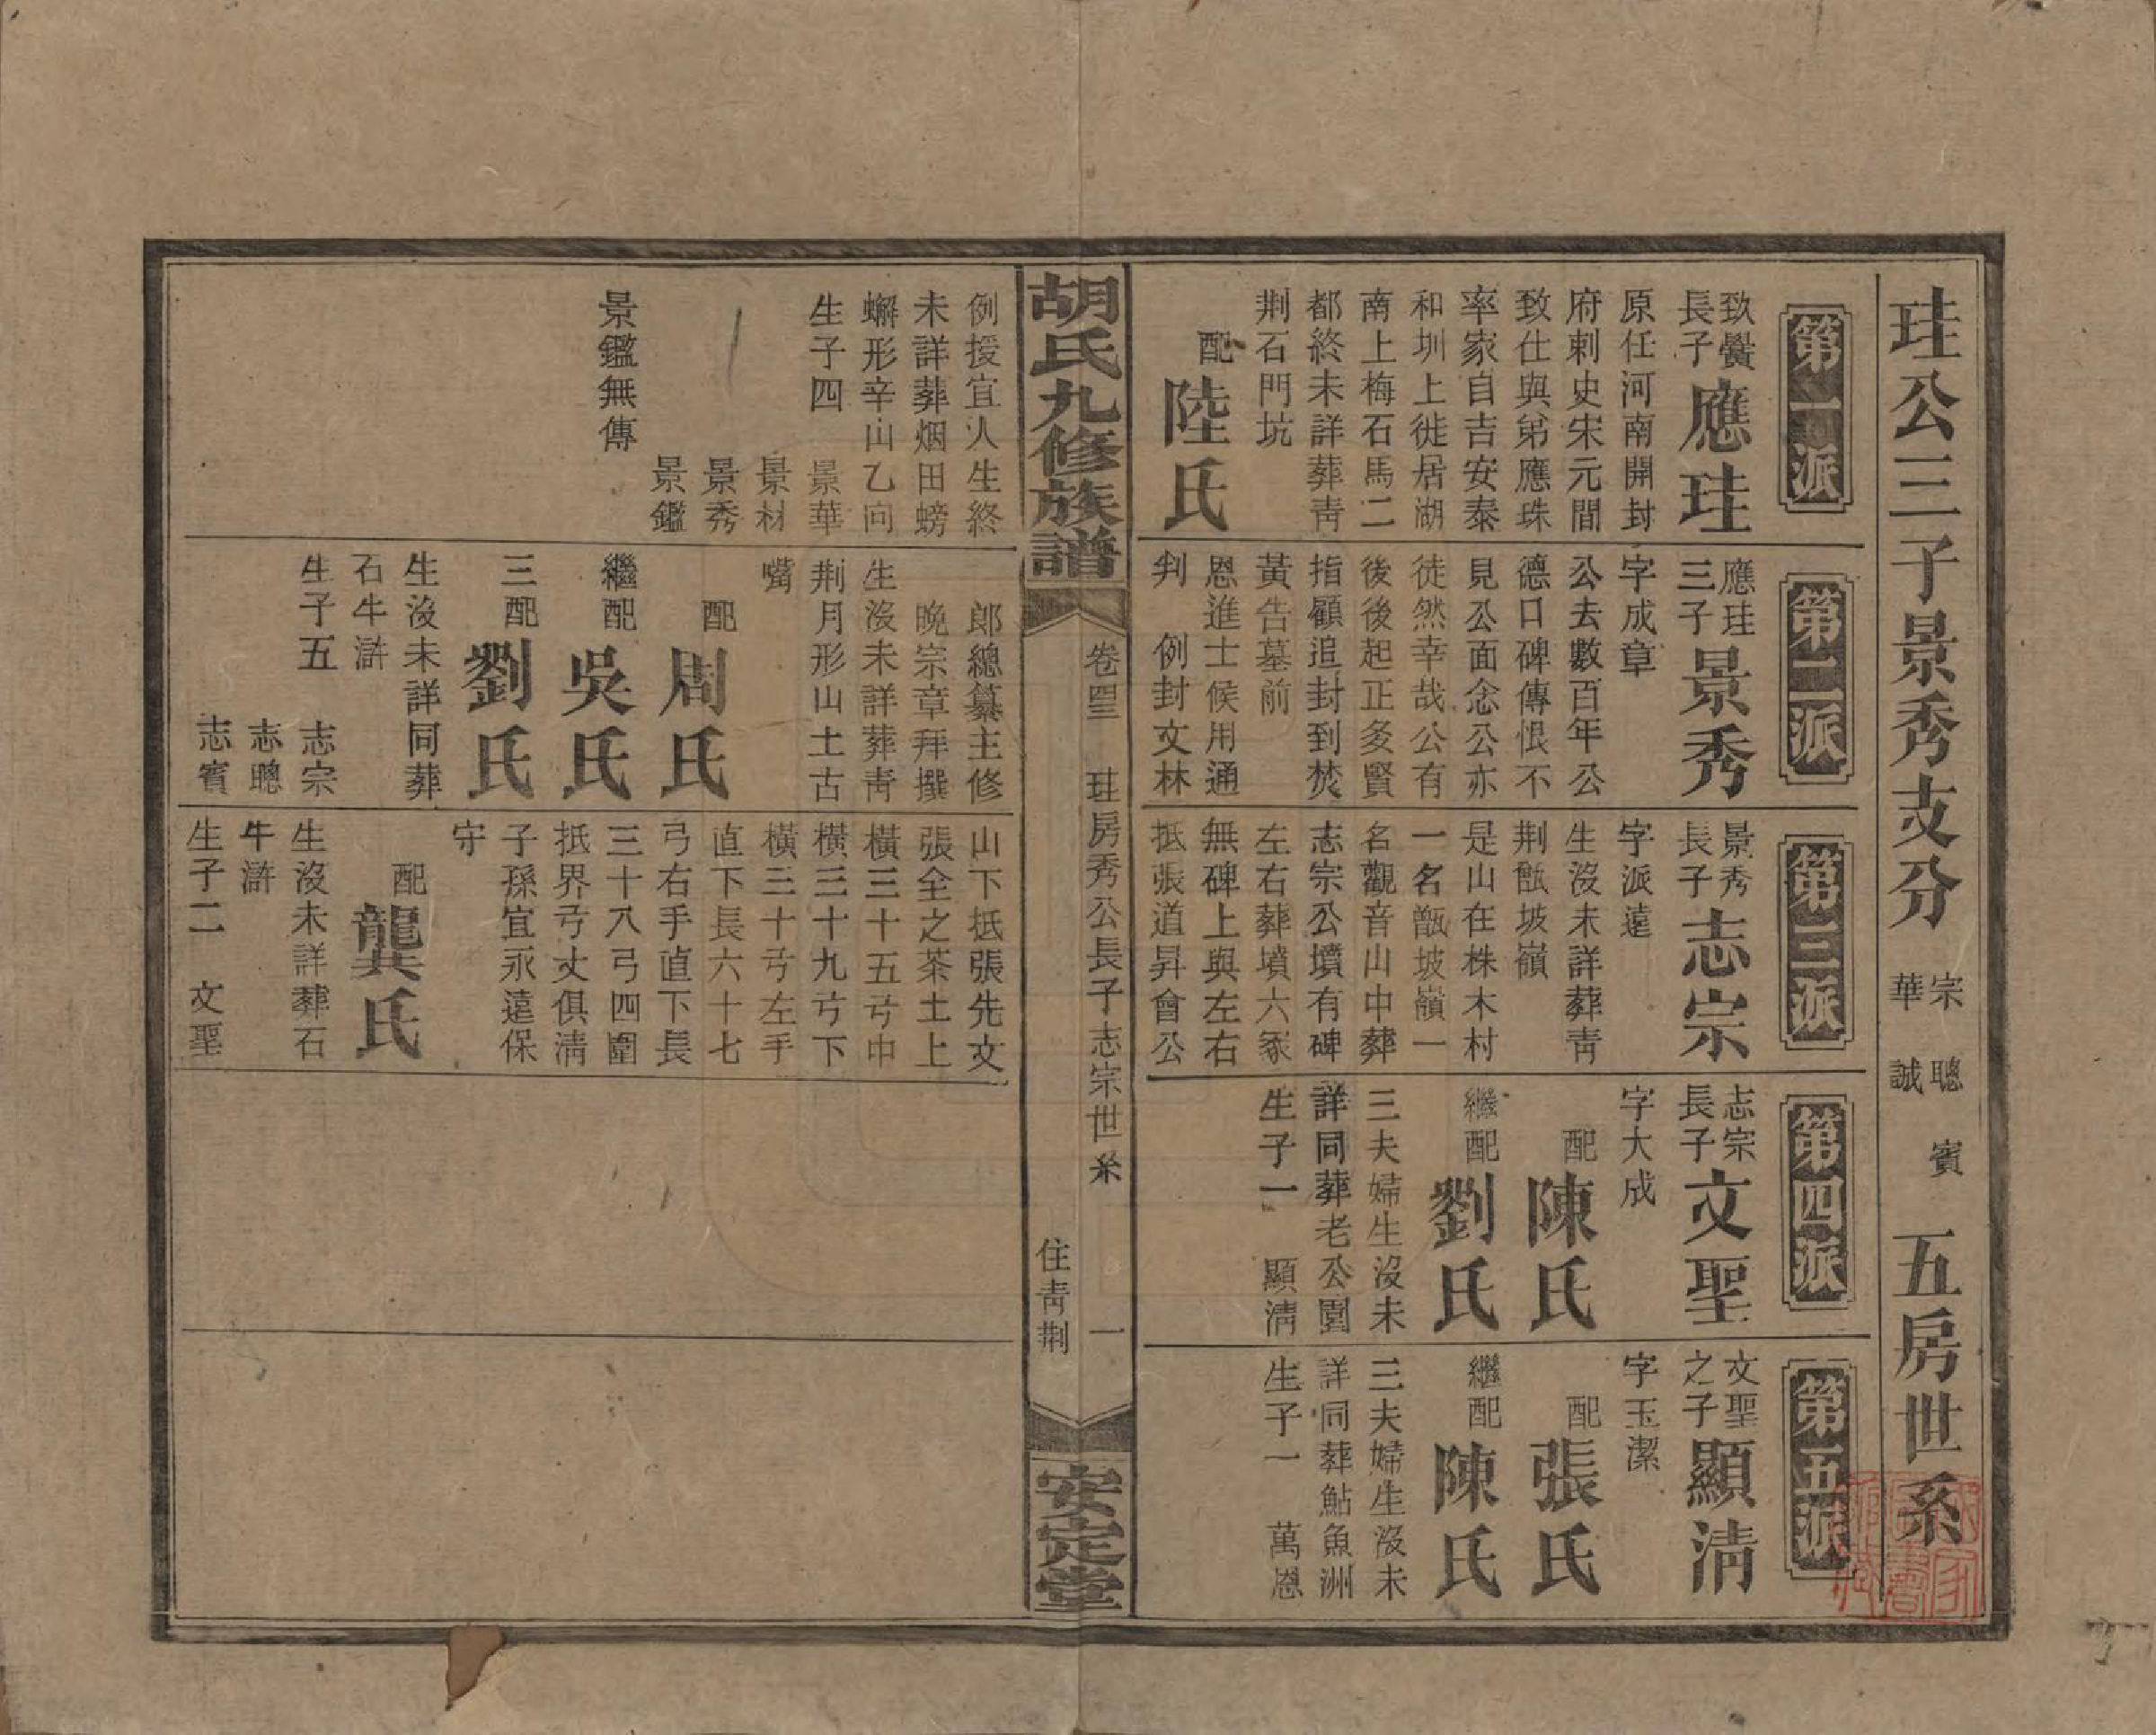 珪公三子景秀支分 宗華 聰誠 賓 五房世系
第一派
致黌長子 應珪
原任河南開封
府刺史宋元間
致仕與弟應珠
率家自吉安泰
和圳上徙居湖
南上梅石馬二
都終未詳葬靑
荆石門坑
配 陸氏
第二派
應珪三子 景秀
字成章
公去數百年公
德口碑傳恨不
見公面念公亦
徒然幸哉公有
後後起正多賢
指顧追封到焚
黃告墓前
恩進士候用通
判 例封文林
第三派
景秀長子 志宗
字派遠
生沒未詳葬靑
荆甑坡嶺
是山在株木村
一名甑坡嶺一
名觀音山中葬
志宗公墳有碑
左右葬墳六冢
無碑上與左右
抵張道昇會公
第四派
志宗長子 文聖
字大成
配 陳氏
繼配 劉氏
三夫婦生沒未
詳同葬老公園
生子一 顯淸
第五派
文聖之子 顯淸
字玉潔
配 張氏
繼配 陳氏
三夫婦生沒未
詳同葬鮎魚洲
生子一 萬恩
胡氏九修族譜
卷四三 珪房秀公長子志宗世系 一
住靑荆
安定堂
例授宜人生終
未詳葬烟田螃
蠏形辛山乙向
生子四 景華
景材
景秀
景鑑
景鑑無傳
郎總纂主修
晚宗章拜撰
生沒未詳葬靑
荆月形山土古
嘴
配 周氏
繼配 吳氏
三配 劉氏
生沒未詳同葬
石牛滸
生子五 志宗
志聰
志賓
山下抵張先文
張全之茶土上
橫三十五弓中
橫三十九弓下
橫三十弓左手
直下長六十七
弓右手直下長
三十八弓四圍
抵界弓丈俱淸
子孫宜永遠保
守
配 龔氏
生沒未詳葬石
牛滸
生子二 文聖